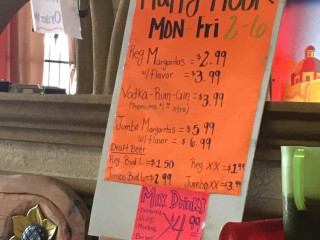 Happy Hour
Mon - Fri 2-6
Reg Margaritas = $2.99
w/flavor = $3.99
Vodka - Rum - Gin = $3.99
(Premiums $1.00 xtra)
Jumbo Margaritas = $5.99
w/flavor = $6.99
Draft Beer
Reg. Bud L = $1.50 Reg XX = $1.99
Jumbo Bud L = $2.99 Jumbo XX = $3.99
Mix Drinks
$4.99